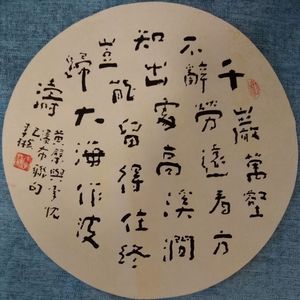 千巖萬壑
不辭勞遠看方
知出處高溪澗
豈能留得住終
歸大海作波
濤
黃檗與李忱
瀑布聯句